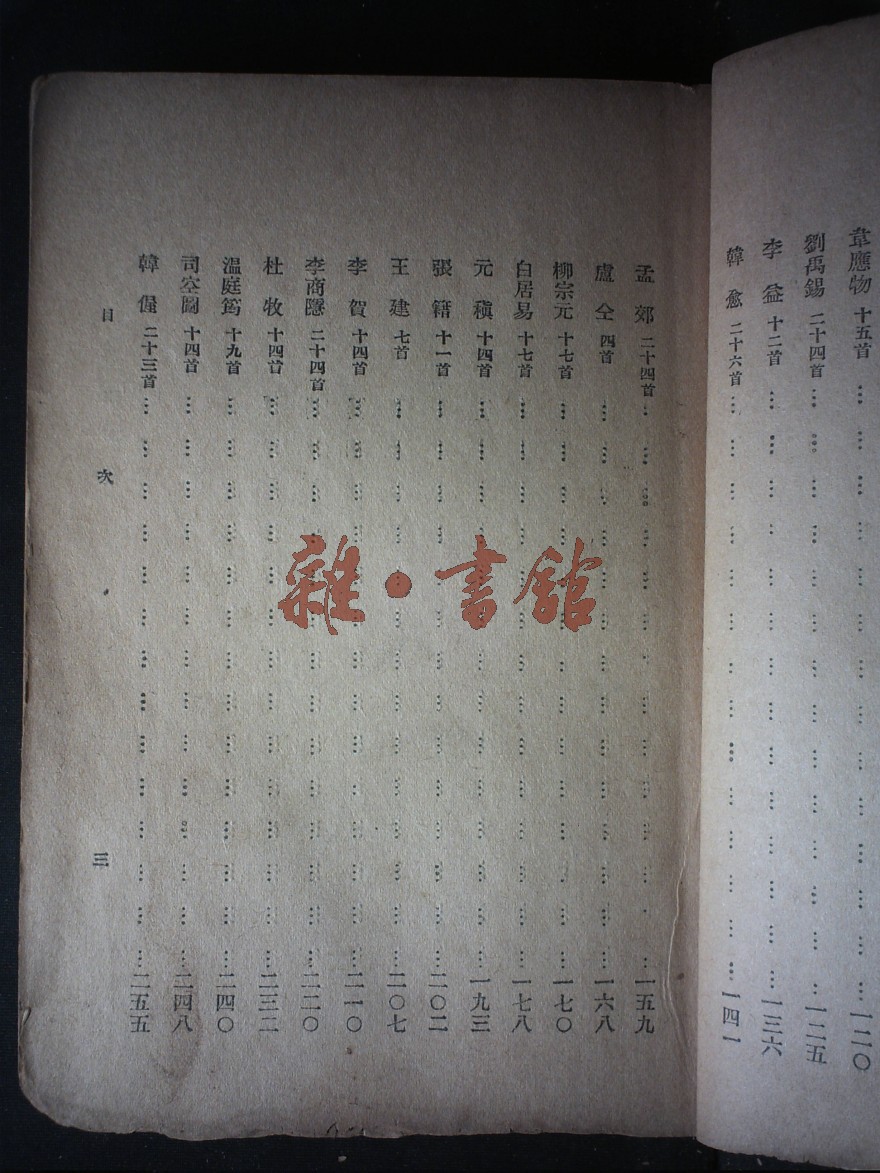 韋應物 十五首 … 一二〇
劉禹錫 二十四首 … 一二五
李益 十二首 … 一三六
韓愈 二十六首 … 一四一
孟郊 二十四首 … 一五九
盧仝 四首 … 一六八
柳宗元 十七首 … 一七〇
白居易 十七首 … 一七八
元稹 十四首 … 一九三
張籍 十一首 … 二〇二
王建 七首 … 二〇七
李賀 十四首 … 二一〇
李商隱 二十四首 … 二二〇
杜牧 二十四首 … 二三二
溫庭筠 十九首 … 二四〇
司空圖 十四首 … 二四八
韓偓 二十三首 … 二五五
目次 三
雜·書館